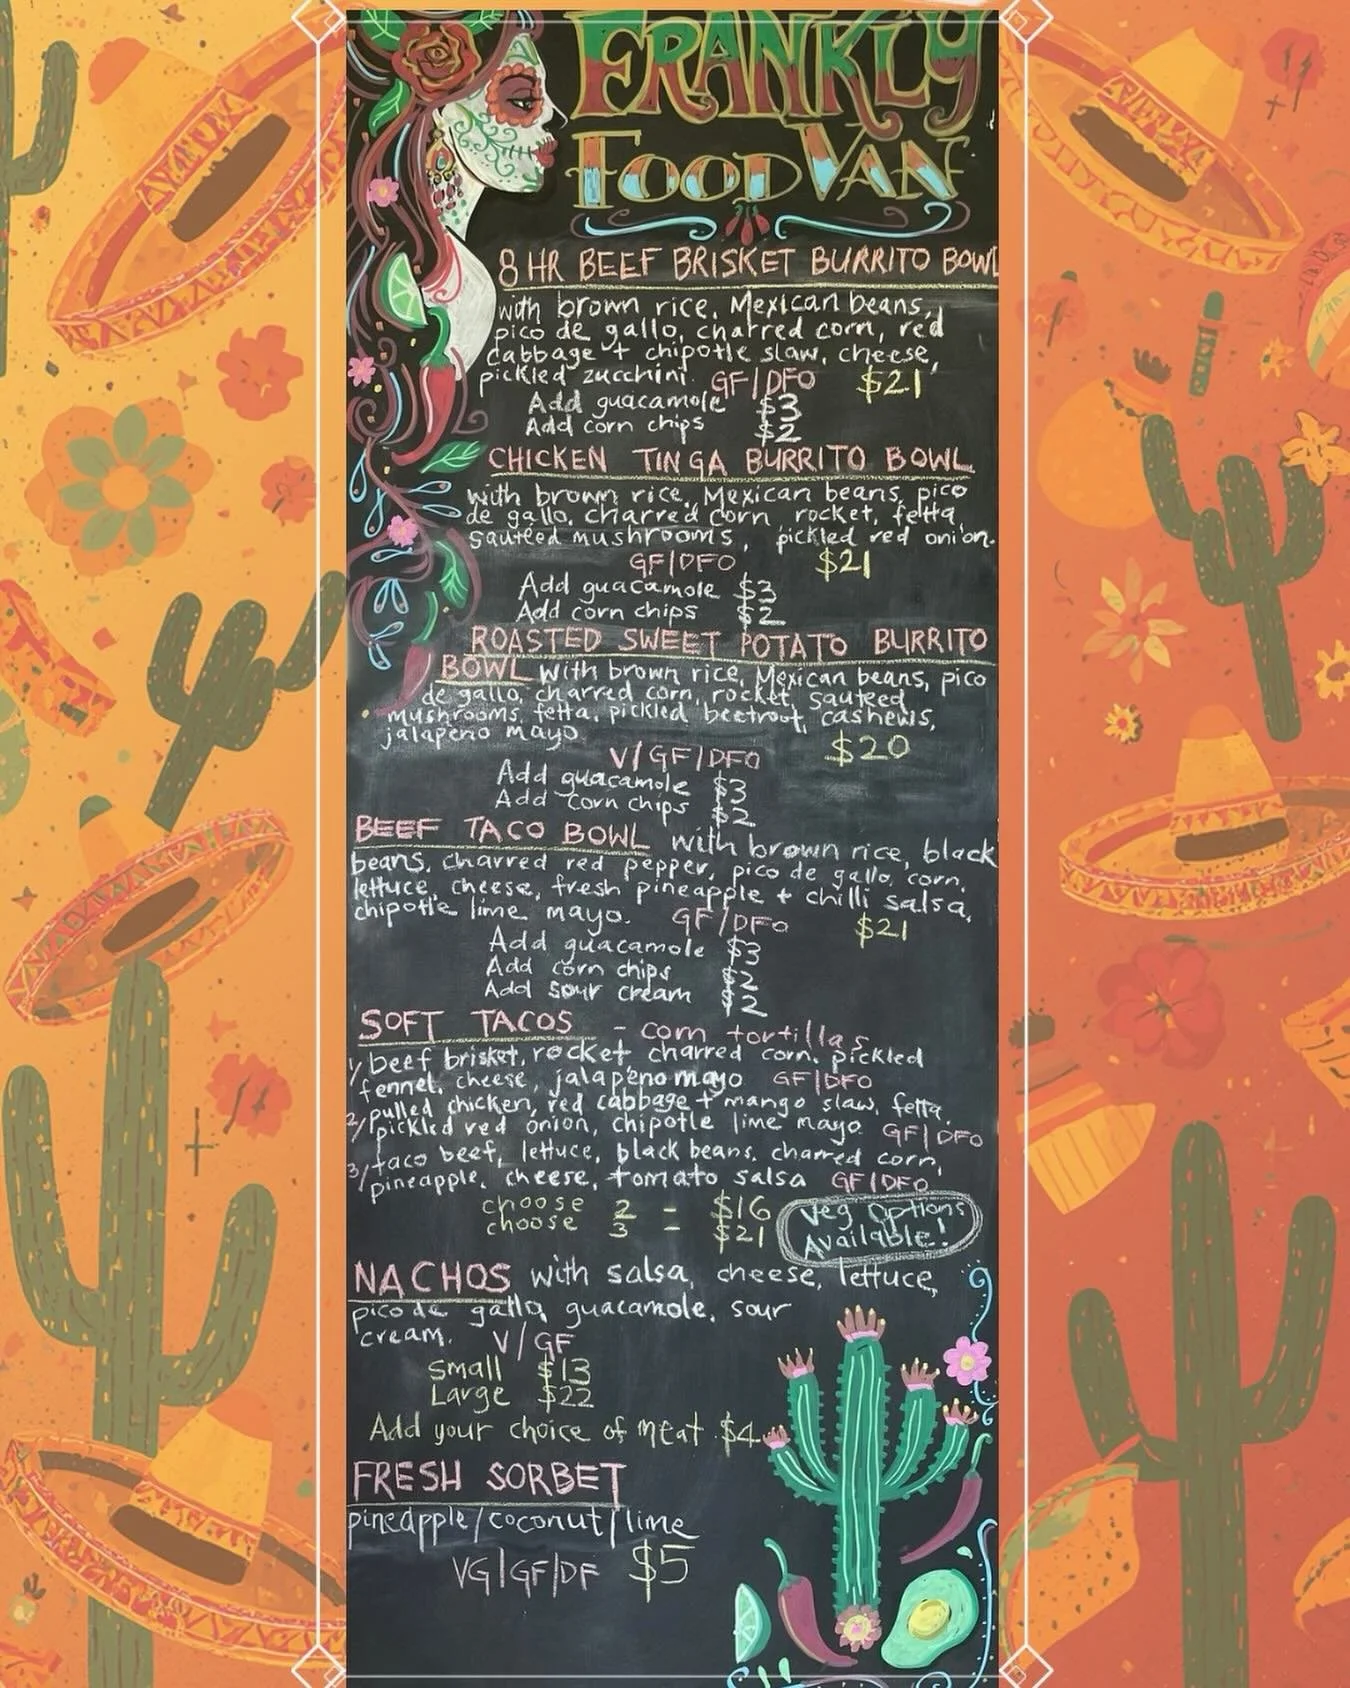 FRANKLY
FOOD VAN
8 HR BEEF BRISKET BURRITO BOWL
with brown rice, Mexican beans,
pico de gallo, charred corn, red
cabbage + chipotle slaw, cheese,
pickled zucchini. GF/DFO $21
Add guacamole $3
Add corn chips $2
CHICKEN TINGA BURRITO BOWL
with brown rice, Mexican beans, pico
de gallo, charred corn rocket, fetta,
sauteed mushrooms, pickled red onion.
GF/DFO $21
Add guacamole $3
Add corn chips $2
ROASTED SWEET POTATO BURRITO
BOWL with brown rice, Mexican beans, pico
de gallo, charred corn, rocket, sauteed
mushrooms, fetta, pickled beetroot, cashews,
jalapeno mayo $20
V/GF/DFO
Add guacamole $3
Add corn chips $2
BEEF TACO BOWL with brown rice, black
beans, charred red pepper, pico de gallo, corn,
lettuce, cheese, fresh pineapple + chilli salsa,
chipotle lime mayo. GF/DFO $21
Add guacamole $3
Add corn chips $2
Add sour cream $2
SOFT TACOS - corn tortillas
1/ beef brisket, rocket, charred corn, pickled
fennel, cheese, jalapeno mayo GF/DFO
2/ pulled chicken, red cabbage + mango slaw, fetta,
pickled red onion, chipotle lime mayo. GF/DFO
3/ taco beef, lettuce, black beans, charred corn,
pineapple, cheese, tomato salsa GF/DFO
choose 2 = $16
choose 3 = $21
Veg Options
Available!
NACHOS with salsa, cheese, lettuce,
pico de gallo, guacamole, sour
cream. V/GF
Small $13
Large $22
Add your choice of meat $4
FRESH SORBET
pineapple/coconut/lime
VG/GF/DF $5